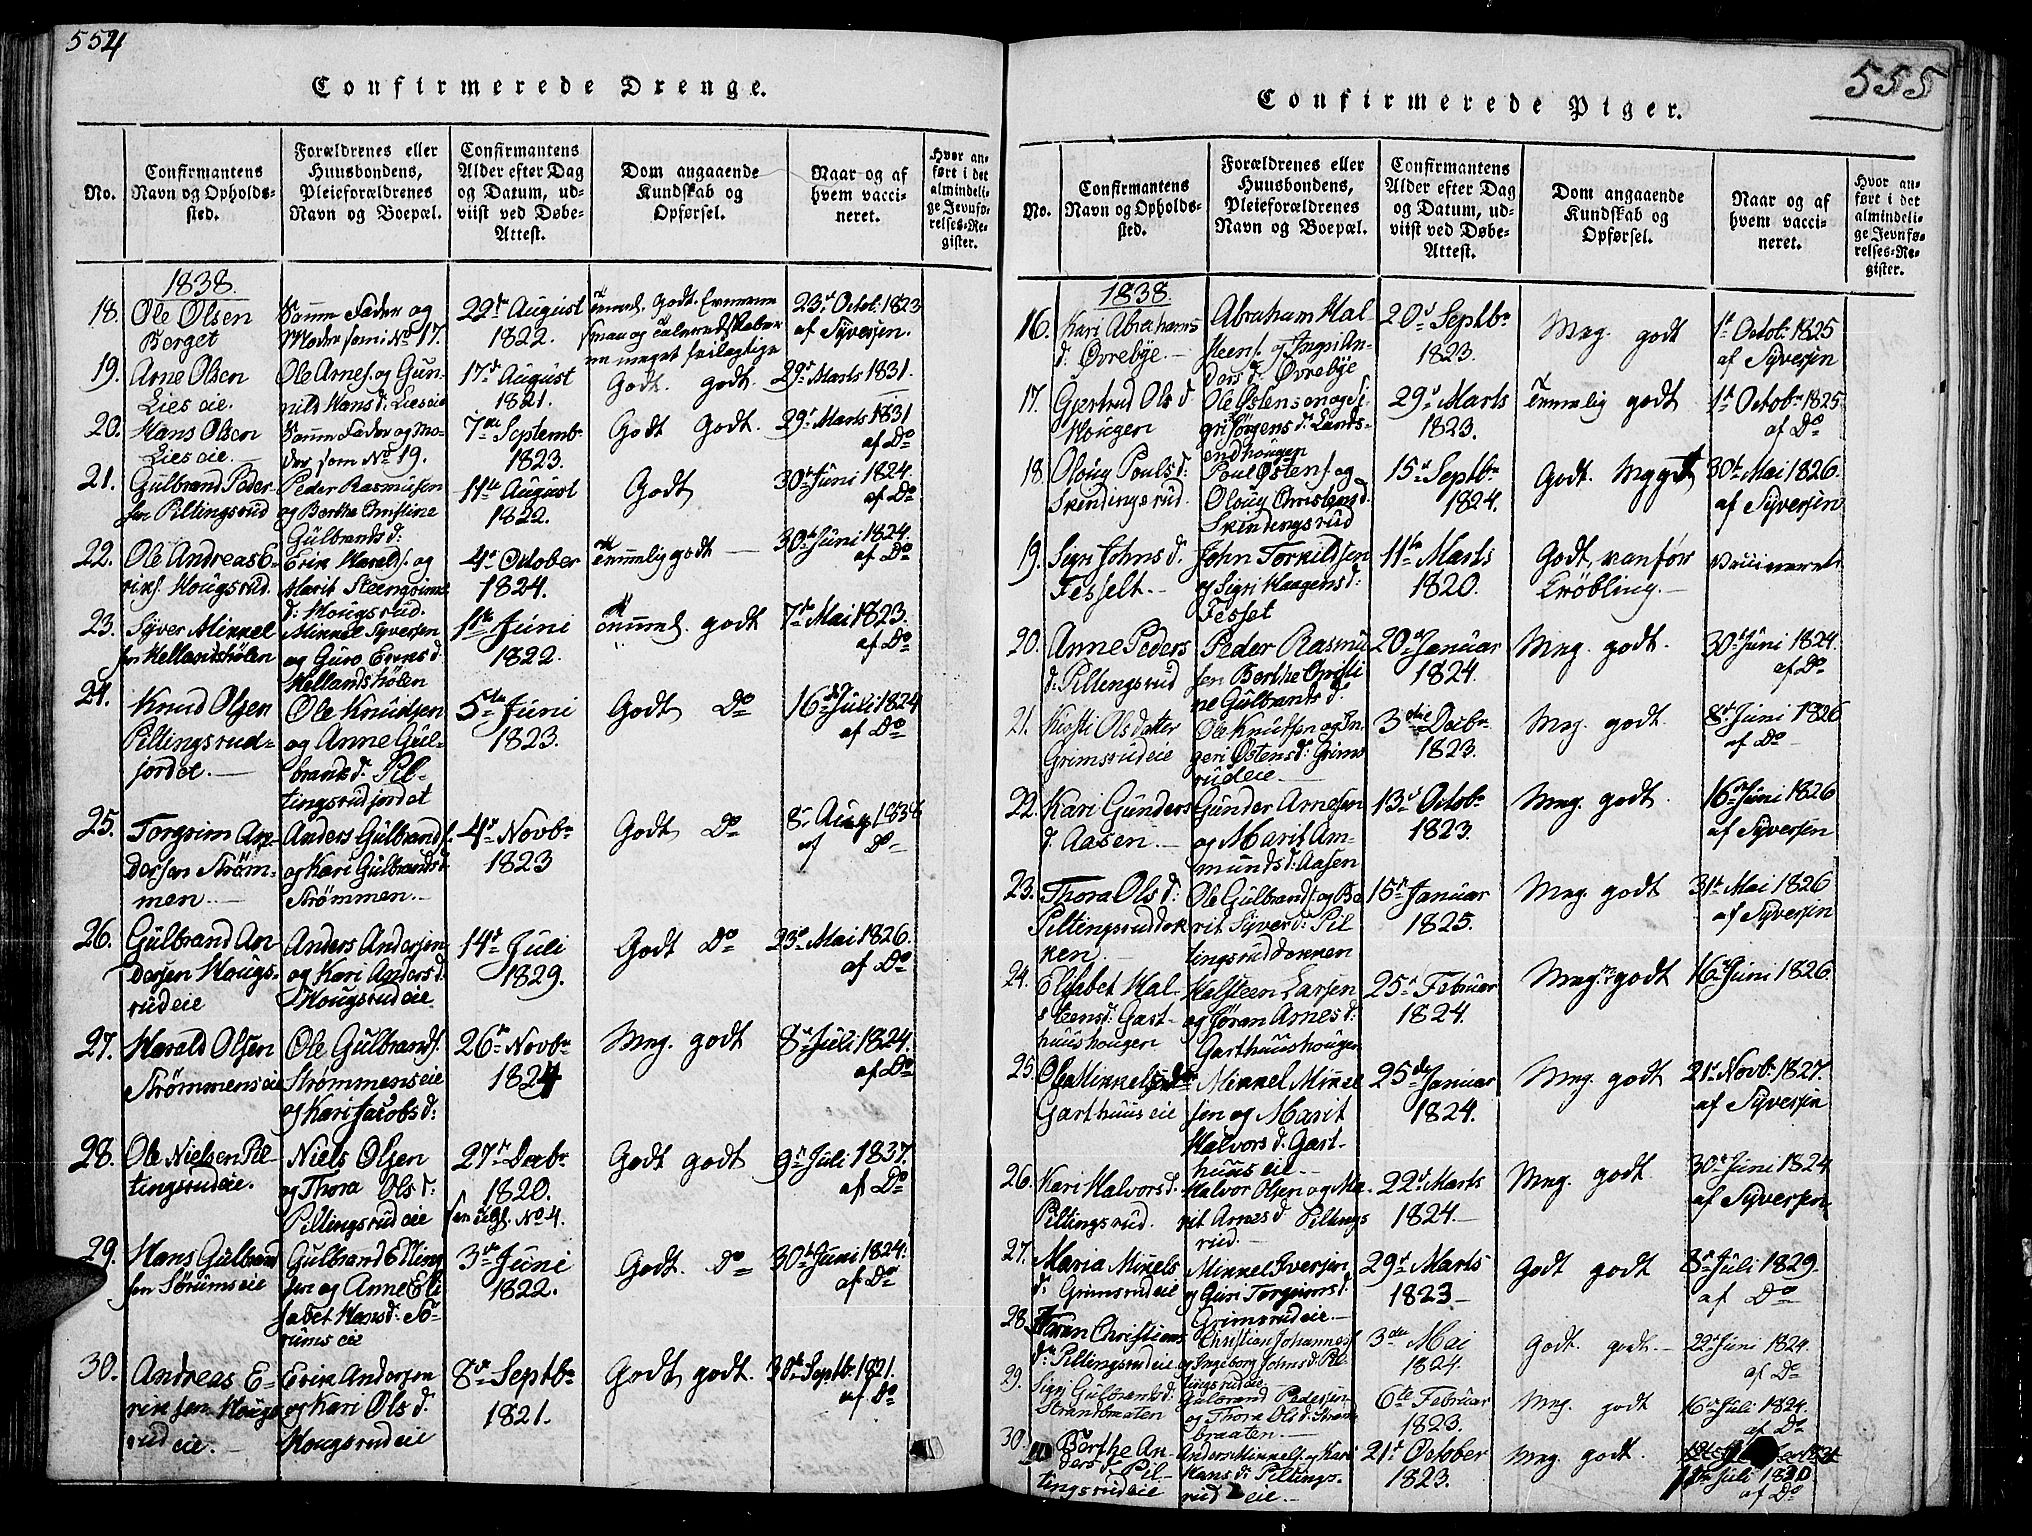 554
Confirmerede Drenge.
No.
Confirmantens
Navn og Opholds-
sted.
Forældrenes eller
Huusbondens,
Pleieforældrenes
Navn og Boepæl.
Confirmantens
Alder efter Dag
og Datum, ud-
viist ved Døbe-
Attest.
Dom angaaende
Kundskab og
Opførsel.
Naar og af
hvem vacci-
neret.
Hvor an-
ført i det
almindeli-
ge Jevnfø-
relses-Re-
gister.
1838.
18. Ole Olsen
Berget
Samme Fader og
Moder som i No 17.
22de August
1822.
Temmel. godt.
meget feilagtige
23d Octob. 1823
af Syversen.
19. Arne Olsen
Lieseie.
Ole Arnes. og Gun-
nild Hans d. Lieseie
17de August
1821.
Godt. godt.
29d Marts 1831.
20. Hans Olsen
Lieseie.
Samme Fader og Mo-
der som No 19.
7de Septemb.
1823.
Godt Godt.
29d Marts 1831
af Do
21. Gulbrand Peder-
sen Piltingsrud
Peder Rasmusen
og Berthe Christine
Gulbrands d:
11te August
1822.
Godt
30d Juni 1824.
af Do
22. Ole Andreas E-
riks. Hougsrud.
Erik Haralds. og
Marit Steengrims
d: Hougsrud.
4d October
1824.
Temmelig godt
30d Juni 1824.
af Do
23. Syver Mikkel
sen Hellandshølen
Mikkel Syversen
og Guro Evens d.
Hellandshølen
1ste Juni
1822.
Temmel. godt
7d Mai 1823.
af Do
24. Knud Olsen
Piltingsrud-
jordet.
Ole Knudsen
og Anne Gul-
brands d. Pil-
tingsrudjordet
5te Juni
1823.
Godt Do
16de Juli 1824
af Do
25. Torgrim An-
dersen Strøm-
men.
Anders Gulbrands.
og Kari Gulbrands d
Strømmen.
4d Novbr
1823
Godt Do
8d Aug 1836
af Do
26. Gulbrand An-
dersen Hougs-
rudeie
Anders Andersen
og Kari Anders d.
Hougsrudeie
14d Juli
1829.
Godt Do
23d Mai 1826.
af Do
27. Harald Olsen
Strømmenseie
Ole Gulbrands.
Strømmenseie
og Kari Jacobs d:
26d Novbr
1824
Meg. godt
8d Juli 1824.
af Do
28. Ole Nielsen Pil-
tingsrudeie.
Niels Olsen
og Thora Ols d:
Piltingsrudeie
27d Decbr
1820.
No 4.
Godt godt
9d Juli 1837.
af Do
29. Hans Gulbrand
sen Sørumseie
Gulbrand Elling
sen og Anne Eli
sabet Hans d: Sø-
rumseie
3de Juni
1822.
Godt. Do
30d Juni 1824.
af Do
30. Andreas E-
riksen Hougs
rudeie.
Erik Andersen
og Kari Ols d:
Hougsrudeie
8de Septbr
1821.
Godt godt.
30d Septbr 1821.
af Do
555
Confirmerede Piger.
No.
Confirmantens
Navn og Opholds-
sted.
Forældrenes eller
Huusbondens,
Pleieforældrenes
Navn og Boepæl.
Confirmantens
Alder efter Dag
og Datum, ud-
viist ved Døbe-
Attest.
Dom angaaende
Kundskab og
Opførsel.
Naar og af
hvem vacci-
neret.
Hvor an-
ført i det
almindeli-
ge Jevnfø-
relses-Re-
gister.
1838
16. Kari Abrahams
d: Øvrebye.
Abraham Hal
steens. og Ingri An-
ders d: Øvrebye
20d Septbr
1823.
Meg. godt
1d Octob. 1825
af Syversen
17. Gjertrud Ols d
Hougen
Ole Østensen og Si
gri Jørgens d. Lands-
endhougen
29d Marts
1823.
Temmelig godt
1d Octobr 1825
af Do
18. Oloug Pouls d:
Skindingsrud.
Poul Østens. og
Oloug Christens d.
Skindingsrud
15d Septbr
1824.
Godt. Meget
30d Mai 1826.
af Syversen
19. Sigri Johns d.
Fesselt.
John Torkildsen
og Sigri Haagens d:
Fesset
11te Marts
1820.
Godt, vanfør
Krøbling.
Vaccineret
20. Anne Peders
d: Piltingsrud
Peder Rasmu
sen Berthe Christi
ne Gulbrands d.
20d Januar
1824.
Meg. godt.
30d Juni 1824.
af Do
21. Kirsti Olsdatter
Grimsrudeie
Ole Knutsen og In-
geri Østens d: Grims
rudeie
3die Decbr
1823.
Meg. godt.
8d Juni 1826
af Do
22. Kari Gunders
d. Aasen.
Gunder Arnesen
og Marit Am-
munds d: Aasen
13d Octobr
1823.
Meg. godt.
16d Juni 1826
af Syversen
23. Thora Ols d:
Piltingsruddok
ken.
Ole Gulbrands. og Be
rit Syver d: Pil
tingsruddokken
15d Januar
1825.
Meg. godt
31d Mai 1826
af Syversen
24. Elisabet Hal-
steens d: Gart-
huushougen
Halsteen Larsen
og Jøran Arnes d:
Garthuushougen
25d Februar
1824.
Meg. godt
16d Juni 1826
25.
Garthuuseie
Mikkel Mikkel
sen og Marit
Halvors d. Gart-
huuseie.
25de Januar
1824.
Meg. godt
21d Novbr 1827.
af Syversen
26. Kari Halvors d.
Piltingsrud.
Halvor Olsen og Ma-
rit Arnes d Piltings
rud.
22d Marts
1824.
Meg. godt
30d Juni 1824
af Syversen
27. Maria Mikels
d: Grimsrudeie
Mikkel Iversen
og Guri Torgrims d.
Grimsrudeie
29d Marts
1823
Godt godt
8d Juli 1829.
af Do
28. Karen Christians
d: Piltingsrudeie
Christian Johannes.
og Ingeborg Johns d. Pil-
tingsrudeie
3die Mai
1824
Godt. godt.
22d Juni 1824.
af Do
29. Sigri Gulbrands d:
Strandbraaten
Gulbrand Pedersen
og Thora Ols d. Strand
braaten.
6te Februar
1823.
Meg. godt
16d Juli 1824.
af Do
30. Berthe An-
ders d. Pil-
tingsrudeie
Anders Mikkels. og Kari
Hans d: Piltings-
rudeie.
21d October
1823.
Meg godt.
11te Juli 1830
af Do